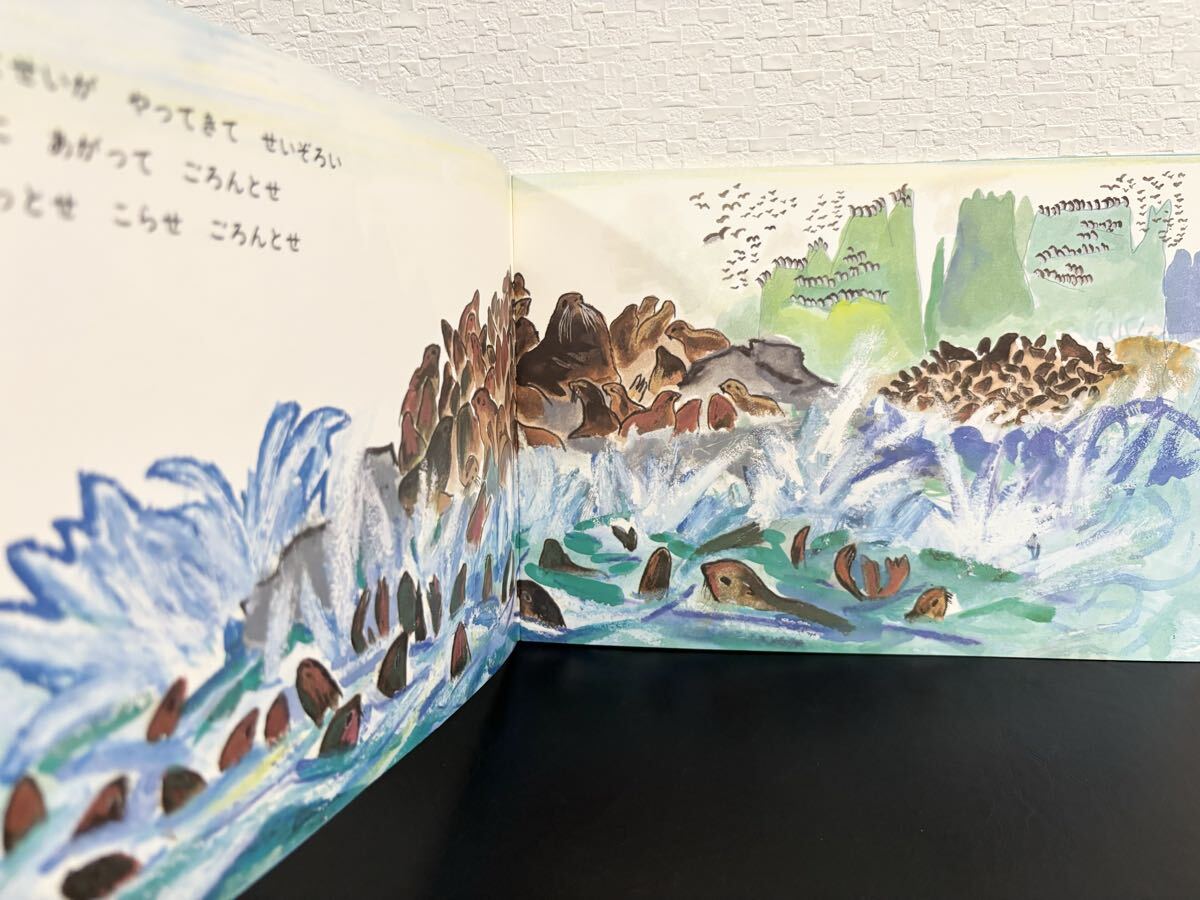 せいが やってきて せいぞろい
あがって ごろんとせ
っとせ こらせ ごろんとせ